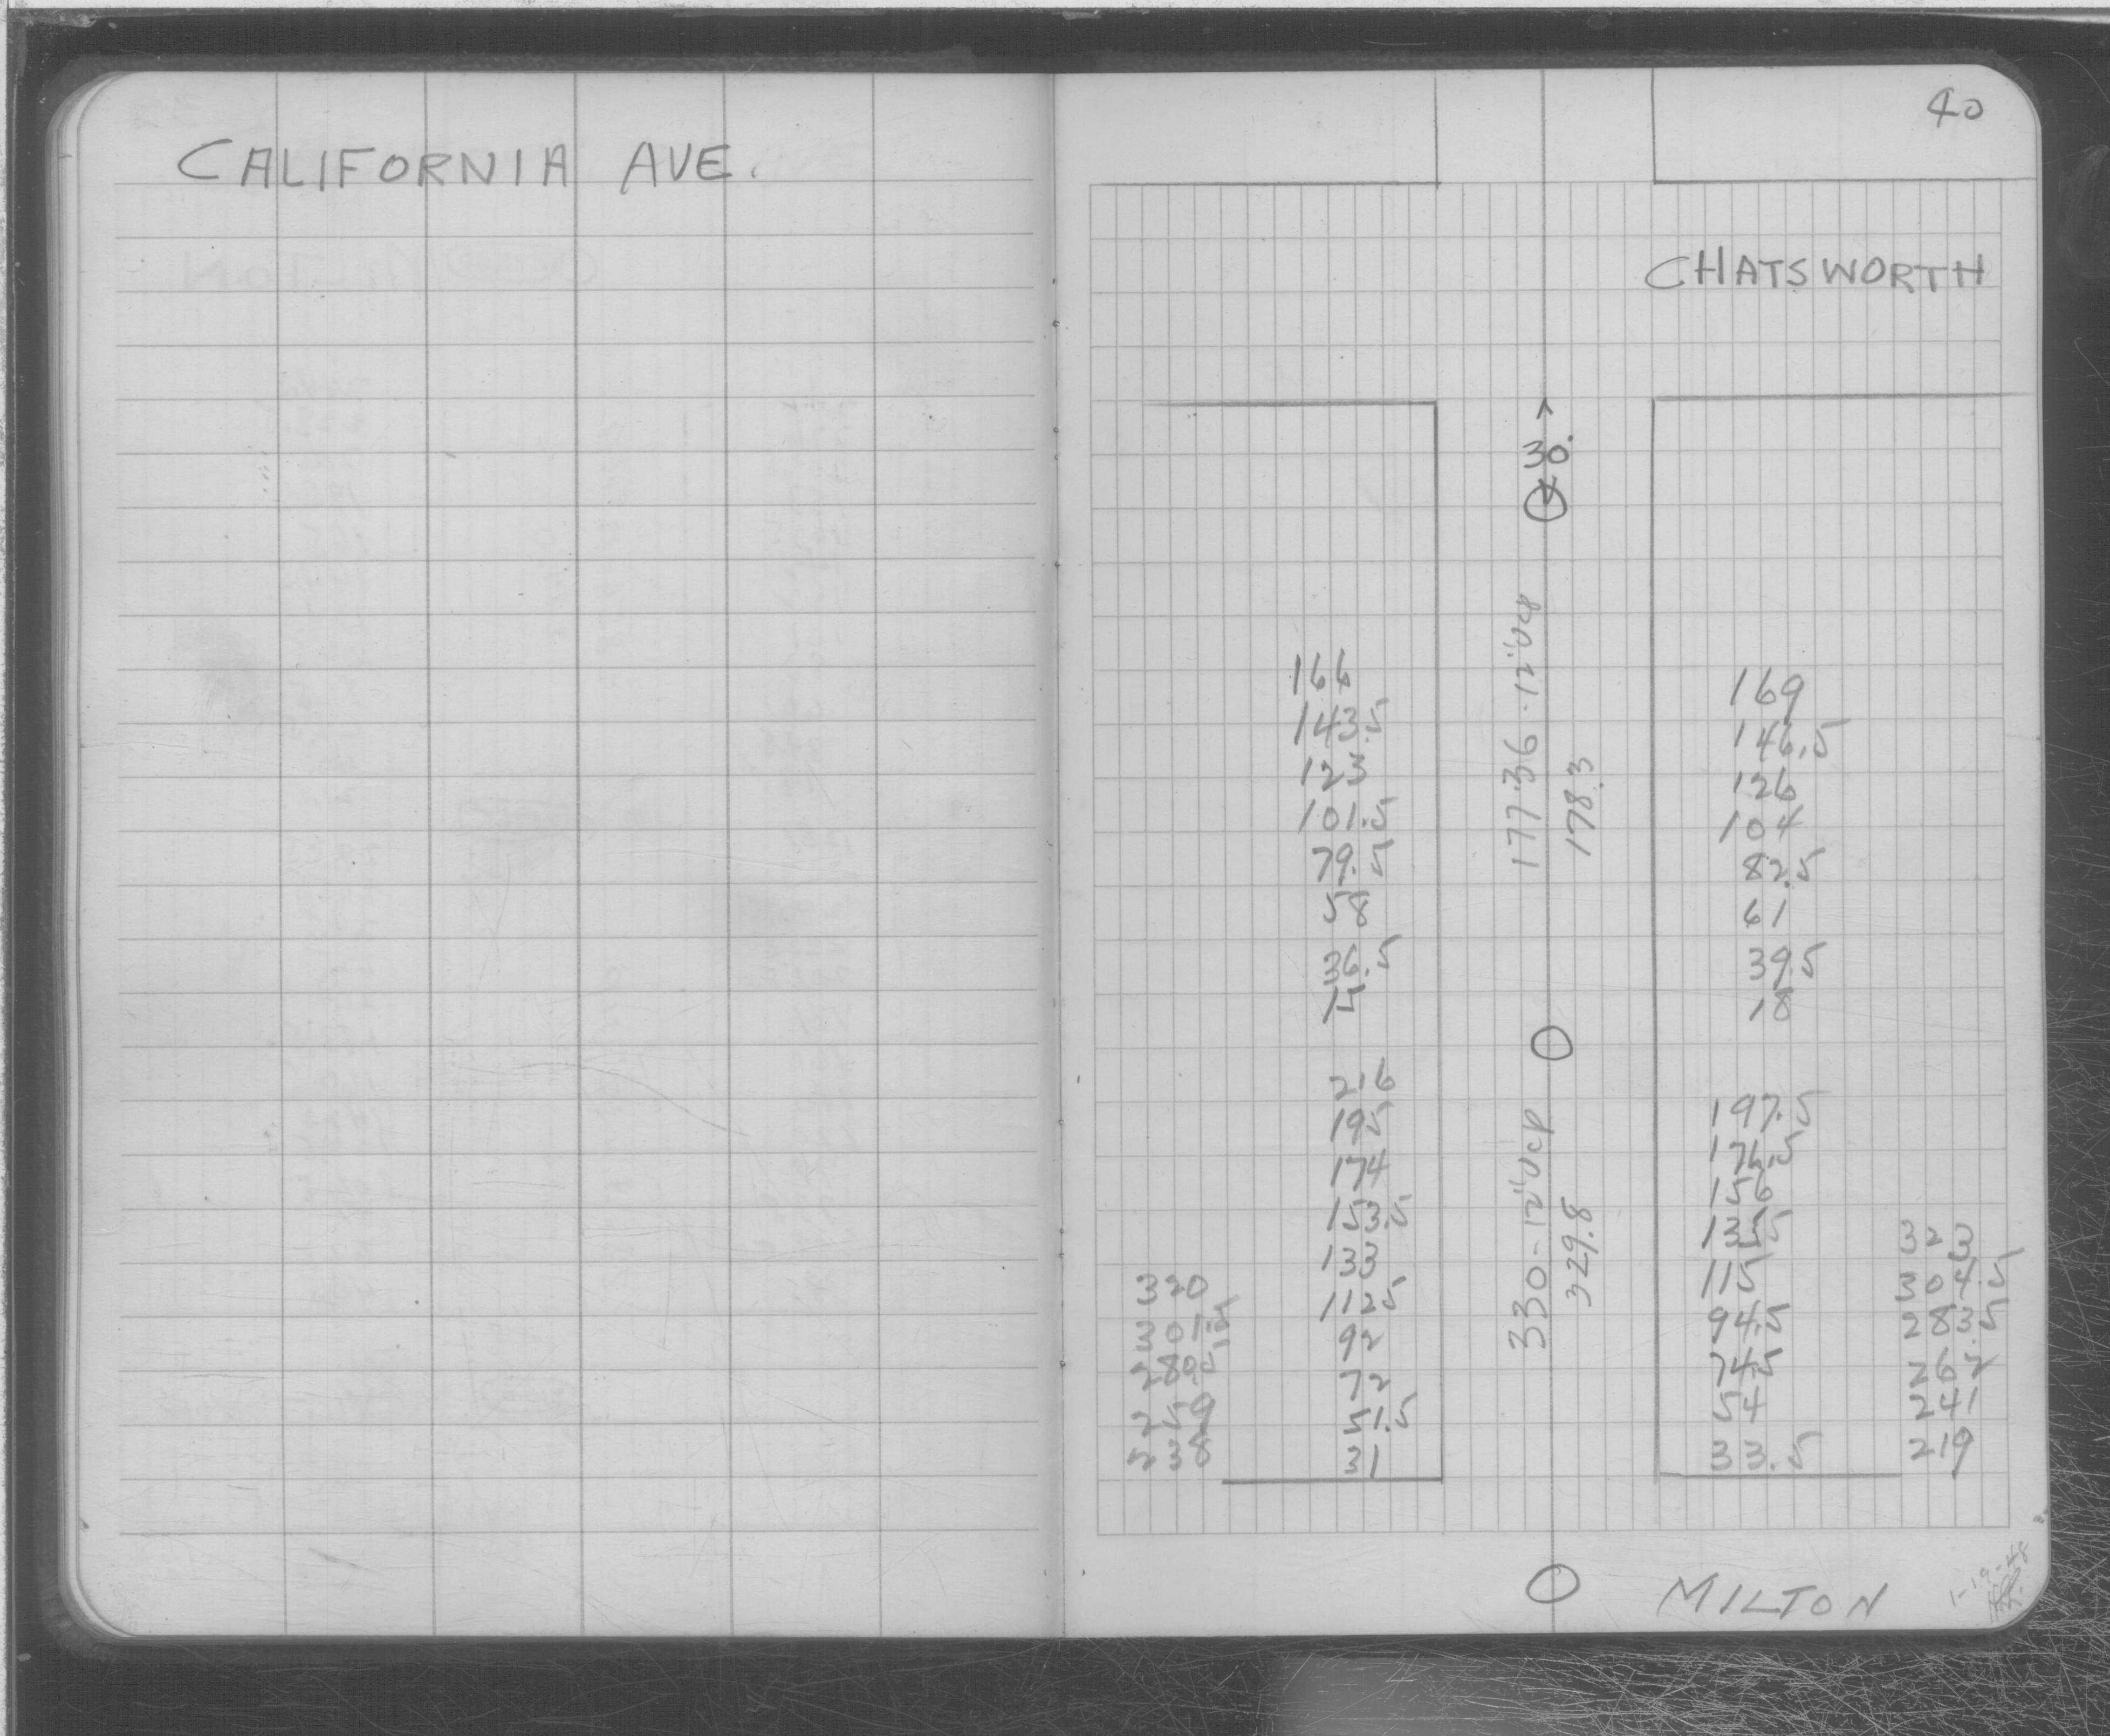 CALIFORNIA AVE.
40
CHATSWORTH
30.
177.36 · 12" VCP
178.3
166
143.5
123
101.5
79.5
58
36.5
14
169
146.5
126
104
82.5
61
39.5
18
330 - 12" VCP
329.8
216
195
174
153.5
133
112.5
92
72
51.5
31
320
301.5
280.5
238
197.5
176.5
156
135.5
115
94.5
74.5
54
33.5
323
304.5
283.5
262
241
219
MILTON
1-19-48